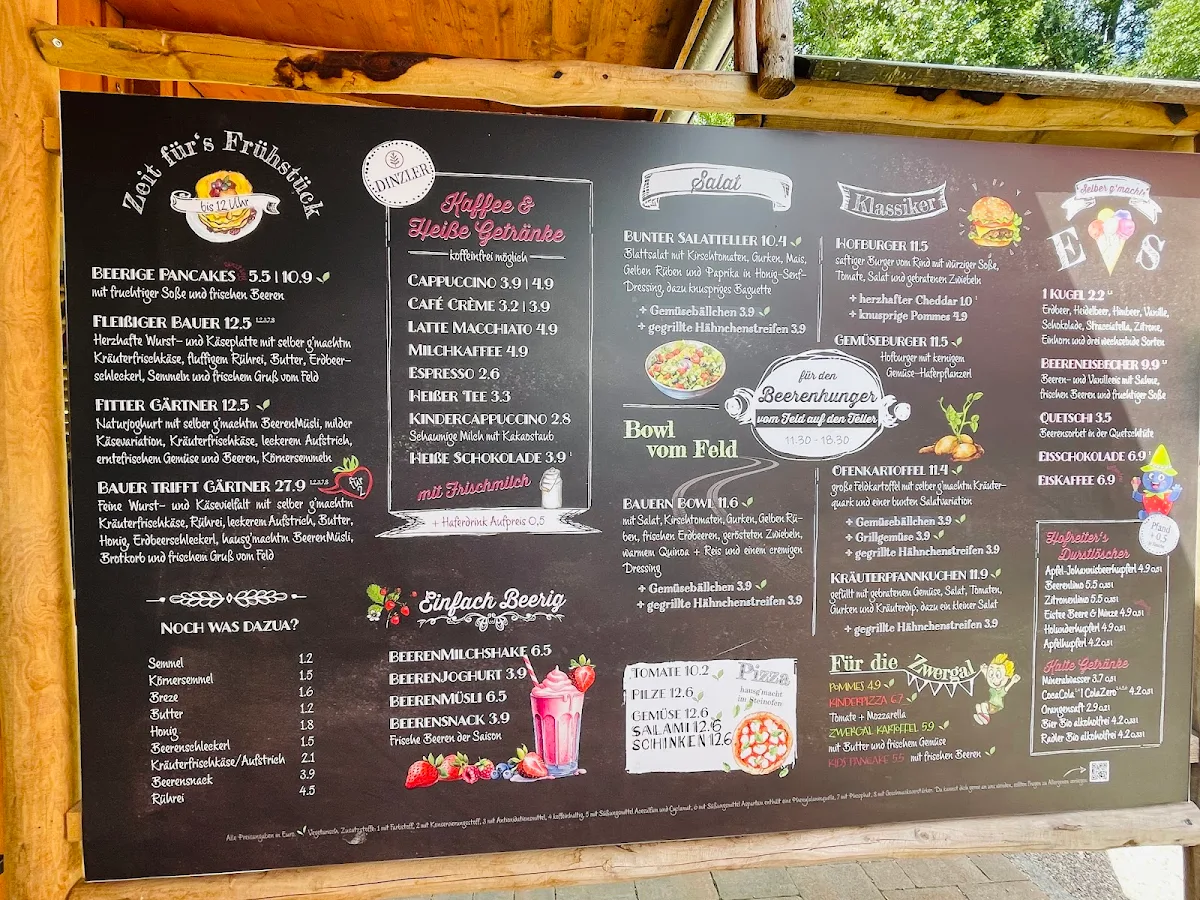 Zeit für's Frühstück
bis 12 Uhr
BEERIGE PANCAKES 5.5 | 10.9
mit fruchtiger Soße und frischen Beeren
FLEIßIGER BAUER 12.5
Herzhafte Wurst- und Käseplatte mit selber g'machtm
Kräuterfrischkäse, fluffigem Rührei, Butter, Erdbeer-
schleckerl, Semmeln und frischem Gruß vom Feld
FITTER GÄRTNER 12.5
Naturjoghurt mit selber g'machtm BeerenMüsli, milder
Käsevariation, Kräuterfrischkäse, leckerem Aufstrich,
erntefrischem Gemüse und Beeren, Körnersemmeln
Für 2
BAUER TRIFFT GÄRTNER 27.9
Feine Wurst- und Käsevielfalt mit selber g'machtm
Kräuterfrischkäse, Rührei, leckerem Aufstrich, Butter,
Honig, Erdbeerschleckerl, hausg'machtm BeerenMüsli,
Brotkorb und frischem Gruß vom Feld
NOCH WAS DAZUA?
Semmel 1.2
Körnersemmel 1.5
Breze 1.6
Butter 1.2
Honig 1.8
Beerenschleckerl 1.5
Kräuterfrischkäse/Aufstrich 2.1
Beerensnack 3.9
Rührei 4.5
DINZLER
Kaffee &
Heiße Getränke
koffeinfrei möglich
CAPPUCCINO 3.9 | 4.9
CAFÉ CRÈME 3.2 | 3.9
LATTE MACCHIATO 4.9
MILCHKAFFEE 4.9
ESPRESSO 2.6
HEIßER TEE 3.3
KINDERCAPPUCCINO 2.8
Schaumige Milch mit Kakaostaub
HEIßE SCHOKOLADE 3.9
mit Frischmilch
+ Haferdrink Aufpreis 0,5
Einfach Beerig
BEERENMILCHSHAKE 6.5
BEERENJOGHURT 3.9
BEERENMÜSLI 6.5
BEERENSNACK 3.9
Frische Beeren der Saison
Salat
BUNTER SALATTELLER 10.4
Blattsalat mit Kirschtomaten, Gurken, Mais,
Gelben Rüben und Paprika in Honig-Senf-
Dressing, dazu knuspriges Baguette
+ Gemüsebällchen 3.9
+ gegrillte Hähnchenstreifen 3.9
Bowl
vom Feld
BAUERN BOWL 11.6
mit Salat, Kirschtomaten, Gurken, Gelben Rü-
ben, frischen Erdbeeren, gerösteten Zwiebeln,
warmem Quinoa + Reis und einem cremigen
Dressing
+ Gemüsebällchen 3.9
+ gegrillte Hähnchenstreifen 3.9
Pizza
hausg'macht
im Steinofen
TOMATE 10.2
PILZE 12.6
GEMÜSE 12.6
SALAMI 12.6
SCHINKEN 12.6
für den
Beerenhunger
vom Feld auf den Teller
11:30 - 18:30
Klassiker
HOFBURGER 11.5
saftiger Burger vom Rind mit würziger Soße,
Tomate, Salat und gebratenen Zwiebeln
+ herzhafter Cheddar 1.0
+ knusprige Pommes 4.9
GEMÜSEBURGER 11.5
Hofburger mit kernigem
Gemüse-Haferpflanzerl
OFENKARTOFFEL 11.4
große Feldkartoffel mit selber g'machtm Kräuter-
quark und einer bunten Salatvariation
+ Gemüsebällchen 3.9
+ Grillgemüse 3.9
+ gegrillte Hähnchenstreifen 3.9
KRÄUTERPFANNKUCHEN 11.9
gefüllt mit gebratenem Gemüse, Salat, Tomaten,
Gurken und Kräuterdip, dazu ein kleiner Salat
+ gegrillte Hähnchenstreifen 3.9
Für die Zwergal
POMMES 4.9
KINDERPIZZA 6.7
Tomate + Mozzarella
ZWERGAL KARTOFFEL 5.9
mit Butter und frischem Gemüse
KIDS PANCAKE 5.5 mit frischen Beeren
Selber g'machts
EIS
1 KUGEL 2.2
Erdbeer, Heidelbeer, Himbeer, Vanille,
Schokolade, Stracciatella, Zitrone,
Einhorn und drei wechselnde Sorten
BEERENEISBECHER 9.9
Beeren- und Vanilleeis mit Sahne,
frischen Beeren und fruchtiger Soße
QUETSCHI 3.5
Beerensorbet in der Quetschtüte
EISSCHOKOLADE 6.9
EISKAFFEE 6.9
Pfand
+ 0,5
Hofreiter's
Durstlöscher
Apfel-Johannisbeerhupferl 4.9 0,5l
Beerenlimo 5.5 0,5l
Zitronenlimo 5.5 0,5l
Eistee Beere & Minze 4.9 0,5l
Holunderhupferl 4.9 0,5l
Apfelhupferl 4.2 0,5l
Kalte Getränke
Mineralwasser 3.7 0,5l
CocaCola | ColaZero 4.2 0,5l
Orangensaft 2.9 0,2l
Bier Bio alkoholfrei 4.2 0,5l
Radler Bio alkoholfrei 4.2 0,5l
Alle Preisangaben in Euro. Vegetarisch. Zusatzstoffe: 1 mit Farbstoff, 2 mit Konservierungsstoff, 3 mit Antioxidationsmittel, 4 koffeinhaltig, 5 mit Süßungsmittel Acesulfam und Cyclamat, 6 mit Süßungsmittel Aspartam enthält eine Phenylalaninquelle, 7 mit Phosphat, 8 mit Geschmacksverstärker. Du kannst dich gerne an uns wenden, solltest Fragen zu Allergenen